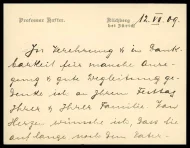 Professor Kocher.
12. VI. 09.
In Verehrung & in Dank-
barkeit für manche Anre-
gung & gute Begleitung ge-
denke ich an Ihrem Festtag
Ihrer & Ihrer Familie. Von
Herzen wünsche ich, dass Sie
auf lange noch dem Vater-